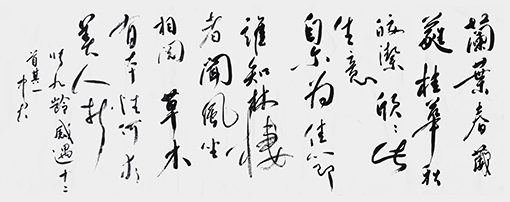 蘭葉春葳
蕤桂華秋
皎潔欣〻此
生意
自尔为佳節
誰知林棲
者聞風坐
相悦草木
有本心何求
美人折
張九齡感遇十二
首其一